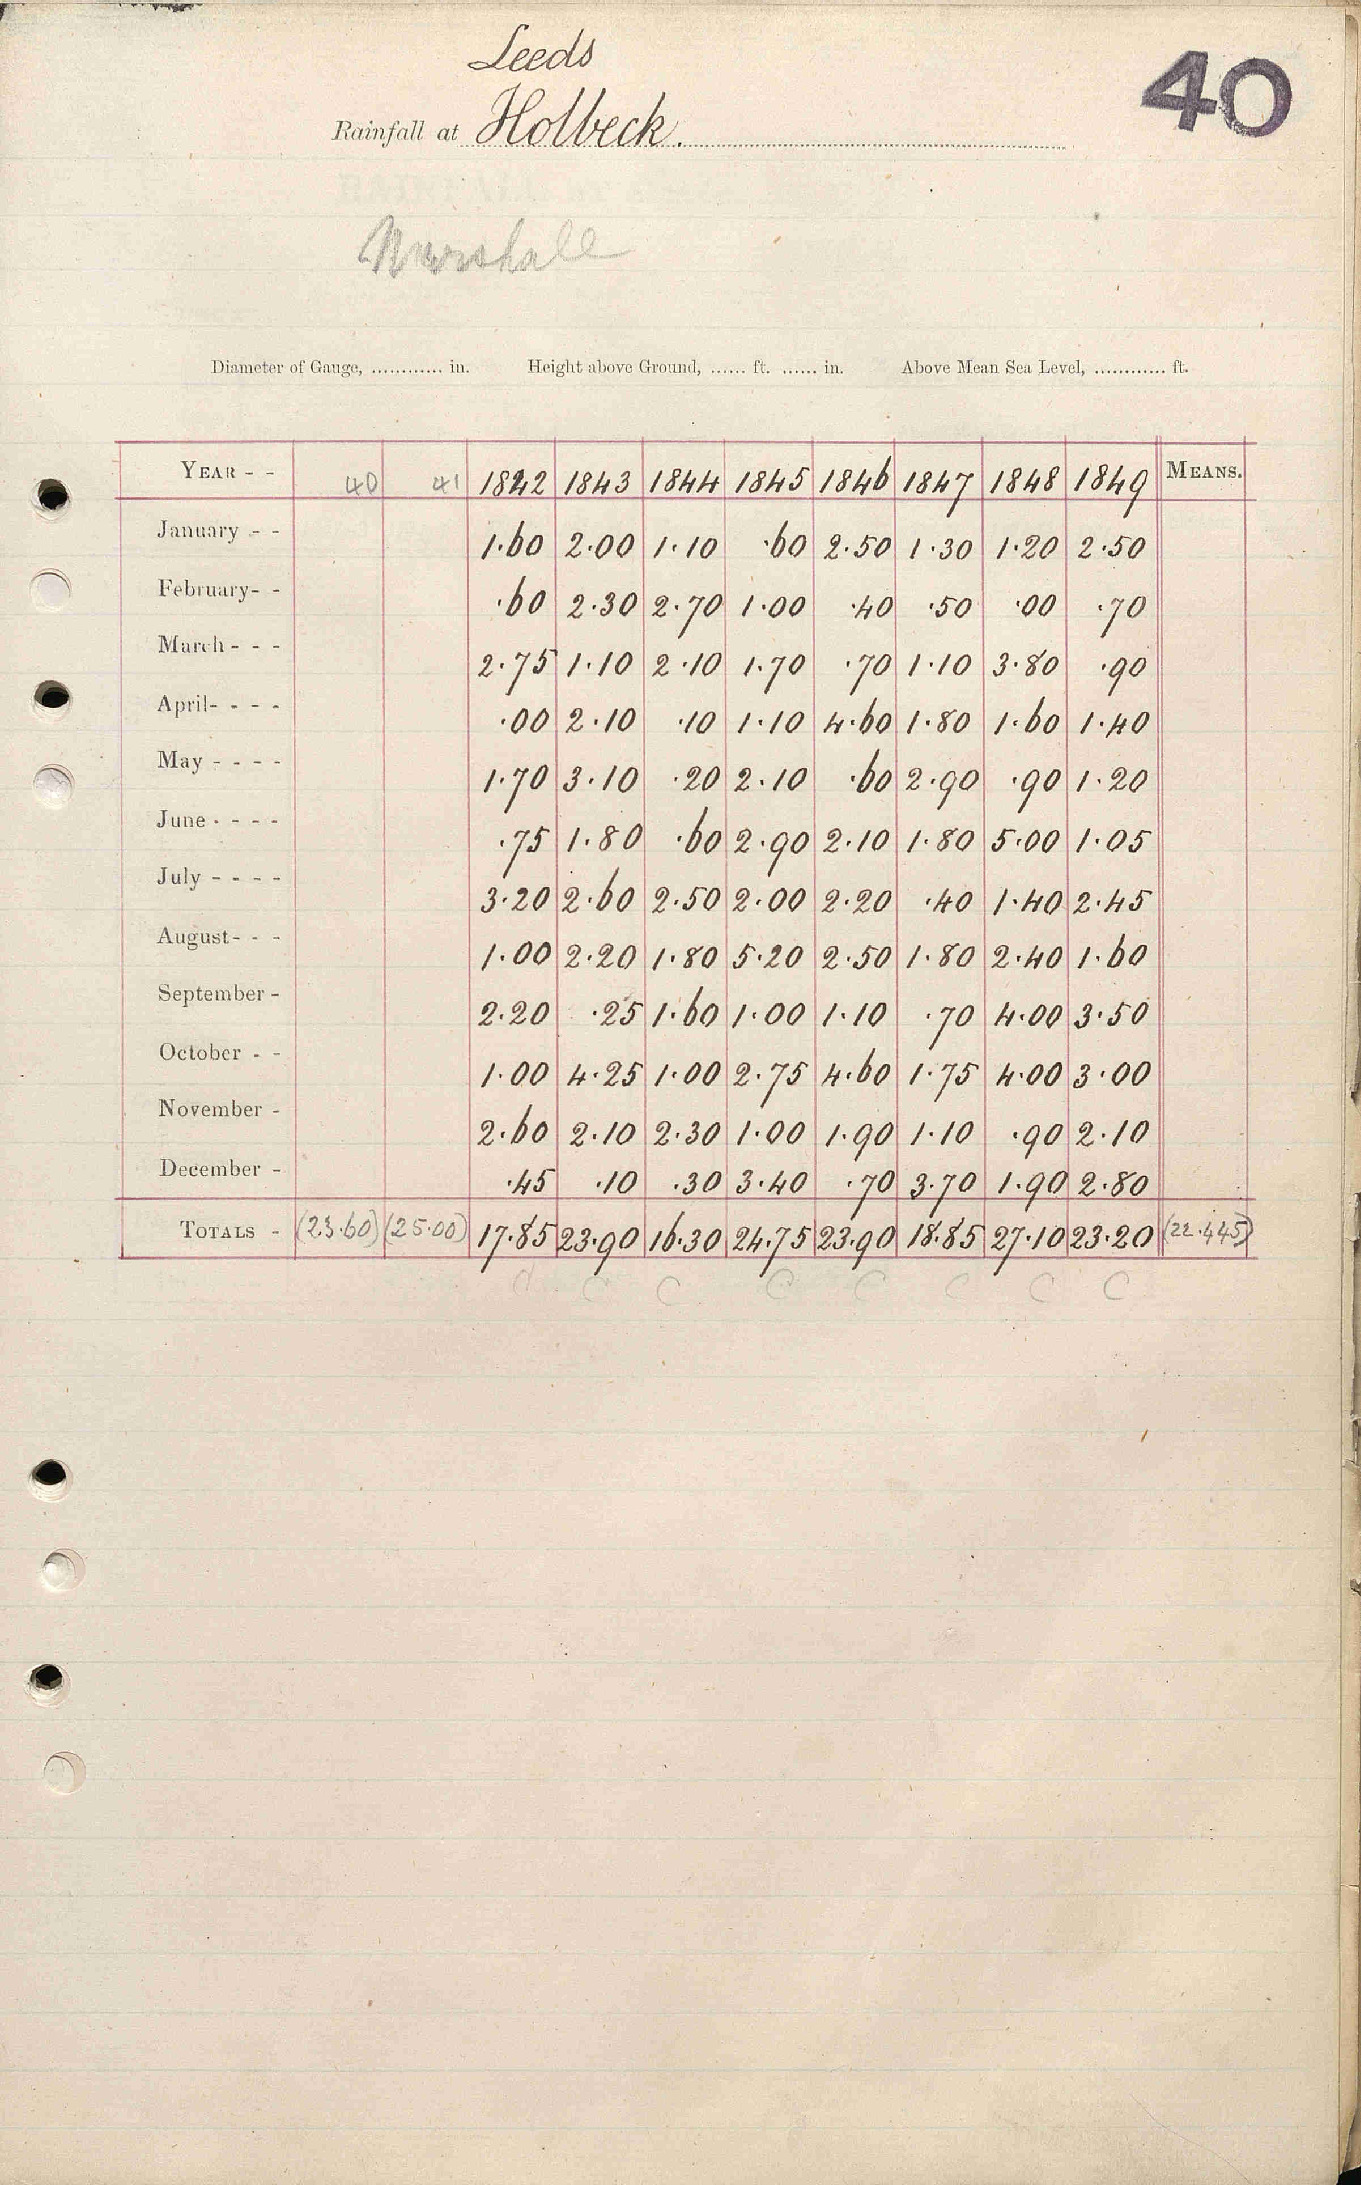 Leeds
40
Rainfall at Holbeck.
Marshall
Diameter of Gauge, ............ in. Height above Ground, ...... ft. ...... in. Above Mean Sea Level, ............ ft.
YEAR - - 40 41 1842 1843 1844 1845 1846 1847 1848 1849 MEANS.
January - - 1.60 2.00 1.10 .60 2.50 1.30 1.20 2.50
February- - .60 2.30 2.70 1.00 .40 .50 .00 .70
March - - - 2.75 1.10 2.10 1.70 .70 1.10 3.80 .90
April- - - - .00 2.10 .10 1.10 4.60 1.80 1.60 1.40
May - - - - 1.70 3.10 .20 2.10 .60 2.90 .90 1.20
June - - - - .75 1.80 .60 2.90 2.10 1.80 5.00 1.05
July - - - - 3.20 2.60 2.50 2.00 2.20 .40 1.40 2.45
August- - - 1.00 2.20 1.80 5.20 2.50 1.80 2.40 1.60
September - 2.20 .25 1.60 1.00 1.10 .70 4.00 3.50
October - - 1.00 4.25 1.00 2.75 4.60 1.75 4.00 3.00
November - 2.60 2.10 2.30 1.00 1.90 1.10 .90 2.10
December - .45 .10 .30 3.40 .70 3.70 1.90 2.80
TOTALS - (23.60) (25.00) 17.85 23.90 16.30 24.75 23.90 18.85 27.10 23.20 (22.445)
C C C C C C C